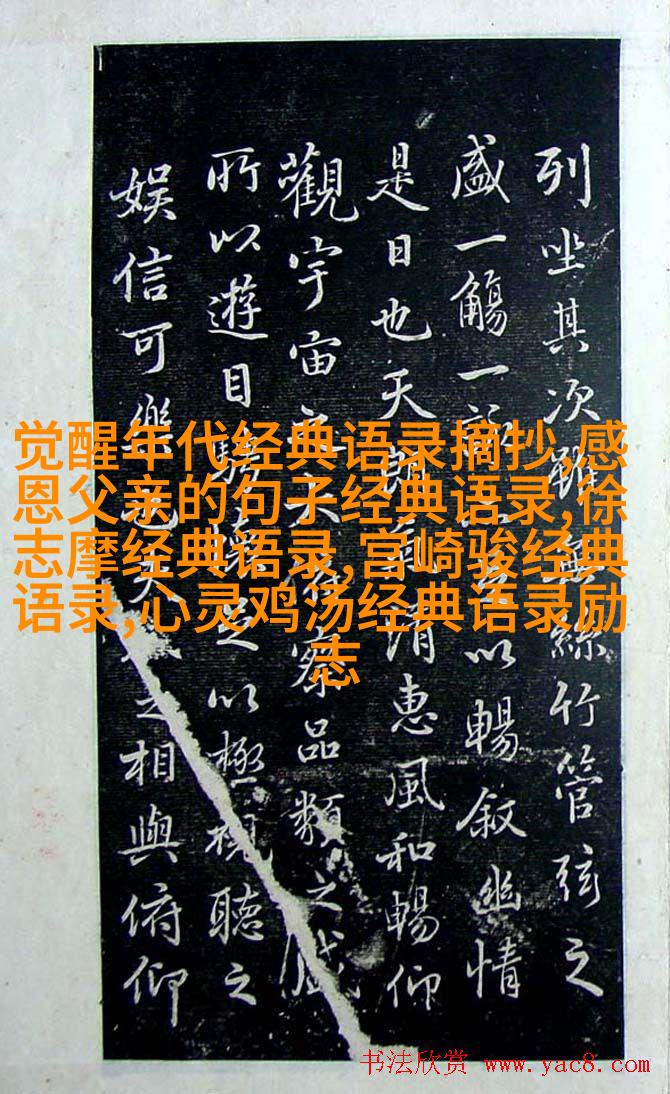 列坐其次雖無絲竹管弦之
盛一觴一詠以暢叙幽情
是日也天朗清惠風和暢仰
觀宇宙之大察品類之盛
所以遊目騁懷足以極視聽之
娱信可樂也夫之相與俯仰
觉醒年代经典语录摘抄,感
恩父亲的句子经典语录,徐
志摩经典语录,宫崎骏经典
语录,心灵鸡汤经典语录励
志
书法欣赏 www.yac8.com